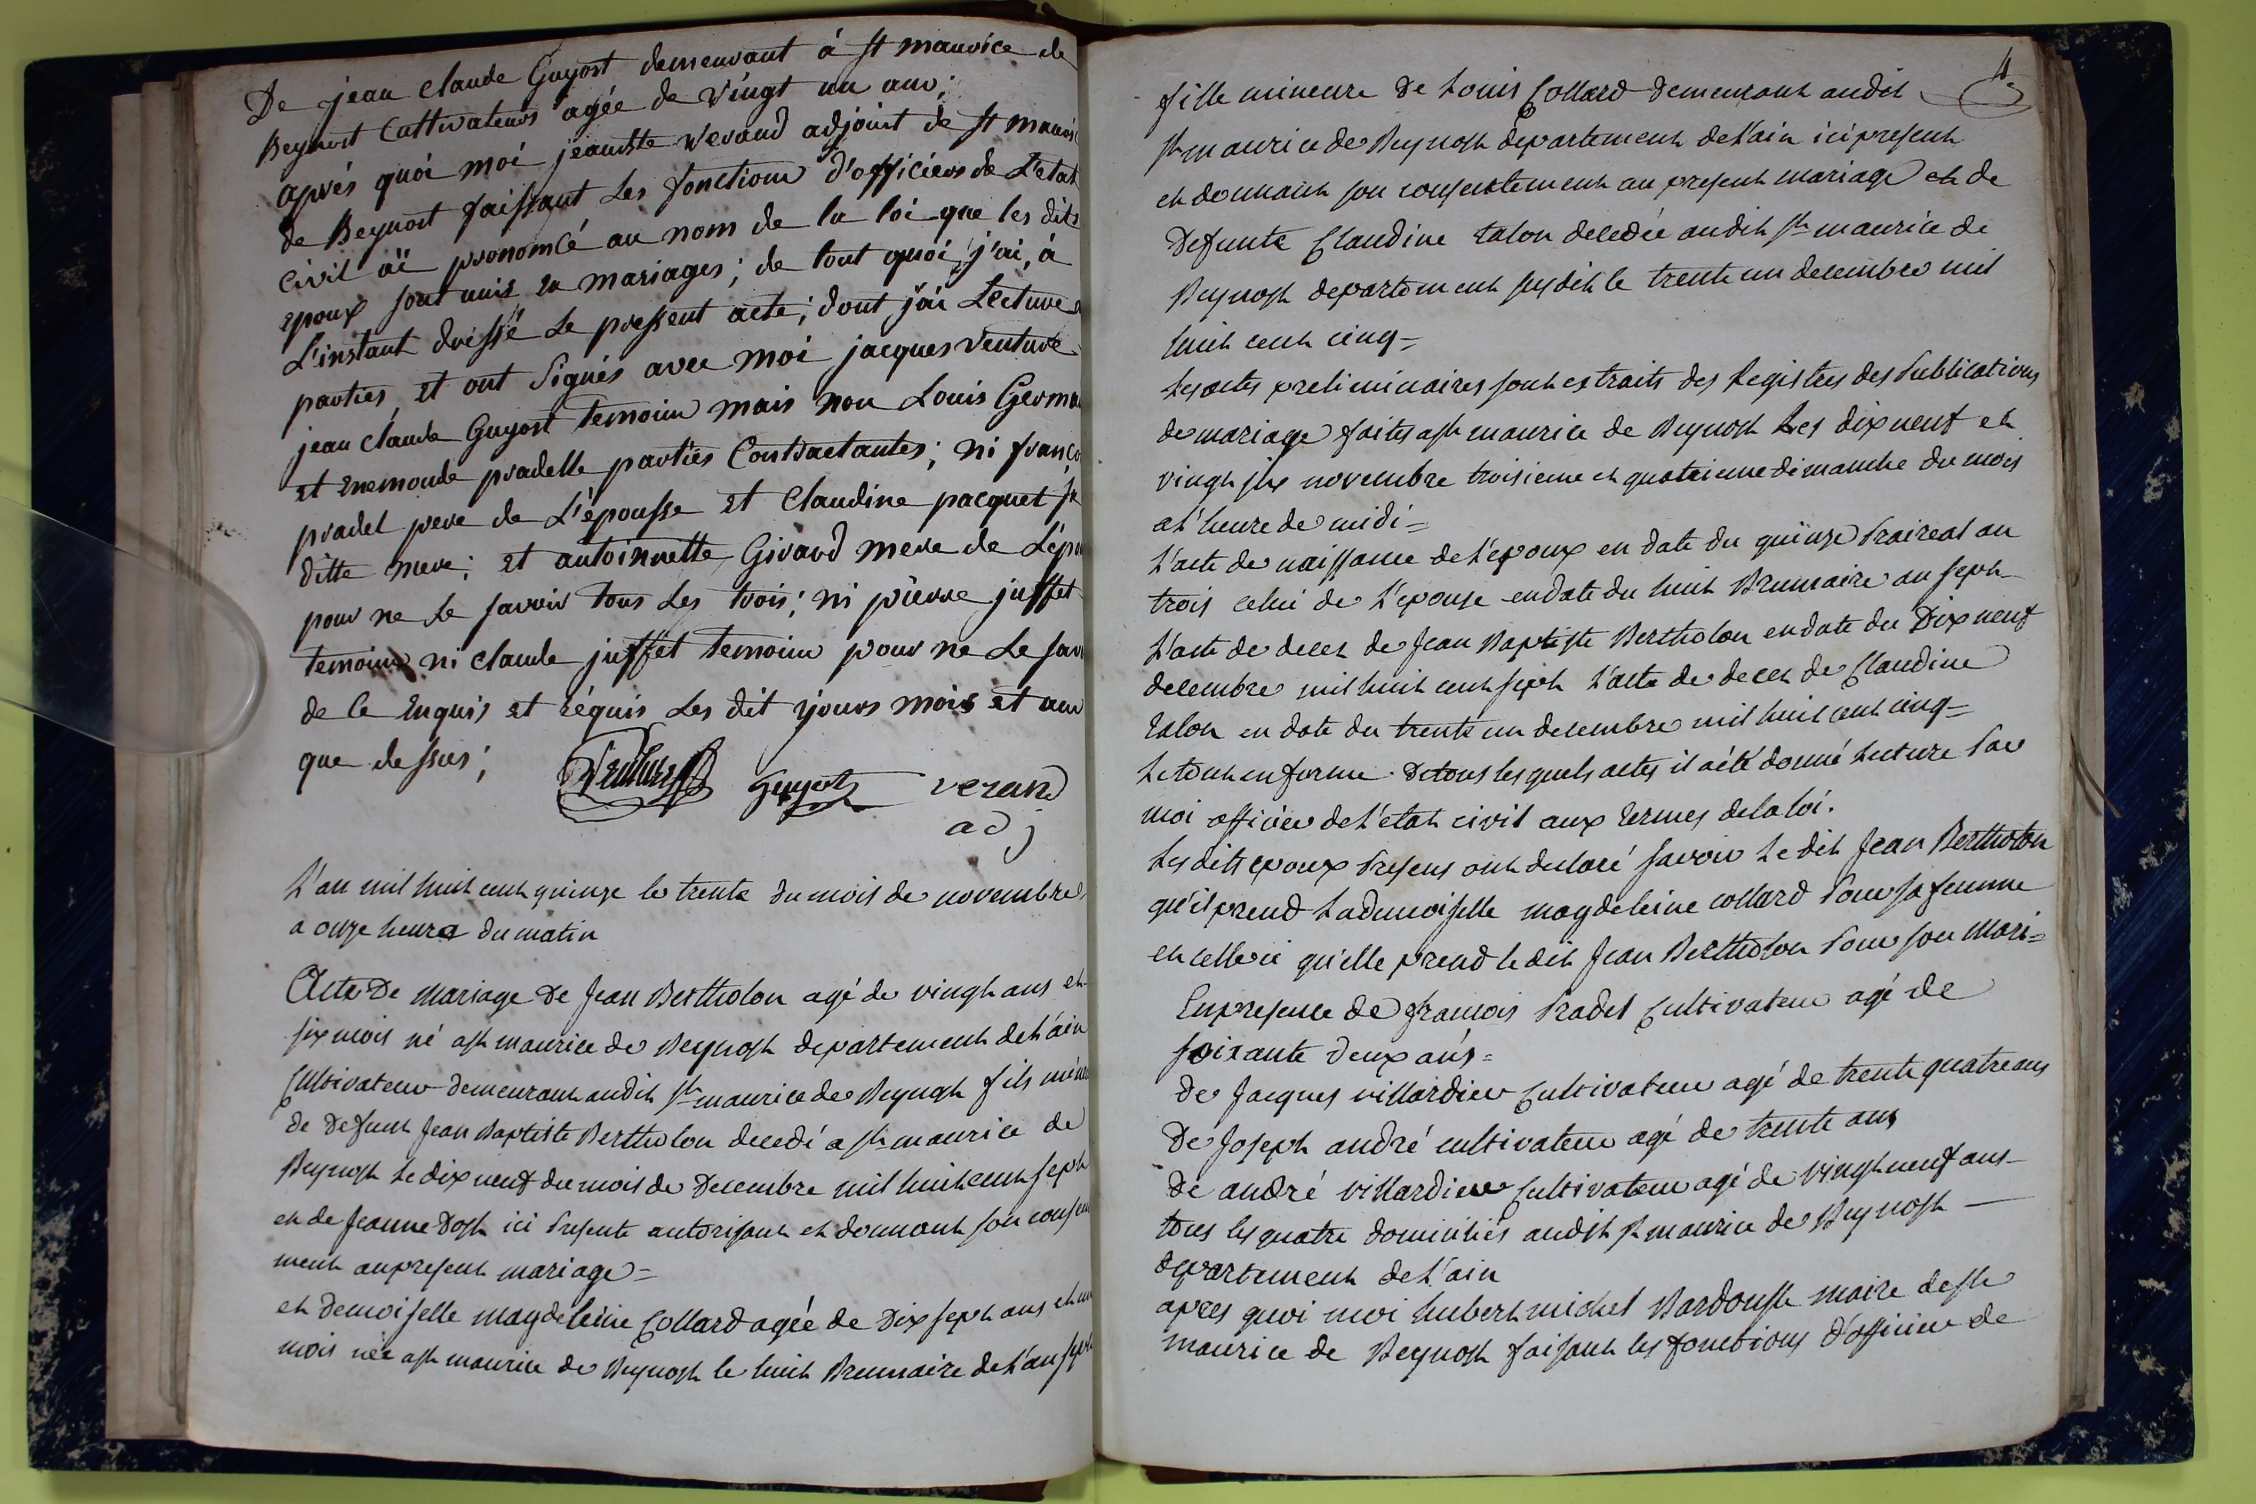 De jean claude Guyost demeurant á st maurice de
Beynost Cultivateurs agée de vingt un ans;
aprés quoi moi jeanbte verand adjoint de st mauri
de Beynost faissant les fonctions d'officiers de L'etat
civil aï prononcé au nom de la loi que les dits
epoux sont unis en mariages; de tout quoi j'ai, á
L'instant dressé le pressent acte; dont j'ai Lecture
parties, et ont signés avec moi jacques venture
jean claude Guyost temoins mais non Louis Germa
et Enemonde pradelle parties Contractantes; ni franço
pradel pere de L'épousse et Claudine pacquet
ditte mere; et antoinette Girard mere de L'épo
pour ne le savoir tous les trois; ni pierre juffet
temoins ni claude juffet temoins pour ne le sav
de ce Enquis et réquis les dit yjours mois et an
que dessus;
Venture Guyot verand
adj
L'an mil huit cent quinze le trente du mois de novembre
a onze heure du matin
Acte De Mariage de Jean Bertholon agé de vingt ans et
six mois né a st maurice de Beynost departement de L'ain
Cultivateur demeurant audit st maurice de Beynost fils mineu
de defunt Jean Baptiste Bertholon decedé a st maurice de
Beynost le dix neuf du mois de Decembre mil huit cent sept
et de Jeanne Dost ici presente autorisant et donnant son consen
ment au present mariage =
et demoiselle magdeleine Collard agée de Dix sept ans et un
mois née a st maurice de Beynost le huit Brumaire de L'an sept
4
fille mineure de Louis Collard demeurant audit
st maurice de Beynost departement de L'ain ici present
et donnant son consentement au present mariage et de
Defunte Claudine talon decedée audit st maurice de
Beynost departement susdit le trente un decembre mil
huit cent cinq =
Les actes preliminaires sont extraits des Registres des Publications
de mariage faites a st maurice de Beynost Les dix neuf et
vingt six novembre troisieme et quatrieme dimanche du mois
a L'heure de midi =
L'acte de naissance de L'epoux en date du quinze Prairial an
trois celui de L'epouse en date du huit Brumaire an sept
L'acte de deces de Jean Baptiste Bertholon en date du Dix neuf
decembre mil huit cent sept L'acte de deces de Claudine
talon en date du trente un decembre mil huit cent cinq =
Le tout en forme. De tous lesquels actes il a été donné Lecture Par
moi officier de L'etat civil aux termes de la loi.
Les dits epoux Presens ont declaré savoir Le dit Jean Bertholon
qu'il prend La demoiselle magdeleine collard Pour sa femme
et celle ci qu'elle prend le dit Jean Bertholon Pour son Mari =
En presence de francois Pradel Cultivateur agé de
soixante deux ans =
de Jacques villardier Cultivateur agé de trente quatre ans
De Joseph andré cultivateur agé de trente ans
De andré villardier Cultivateur agé de vingt neuf ans
tous les quatre domiciliés audit st maurice de Beynost
departement de L'ain
apres quoi moi hubert michel Bardoust maire de st
maurice de Beynost faisant les fonctions d'officier de